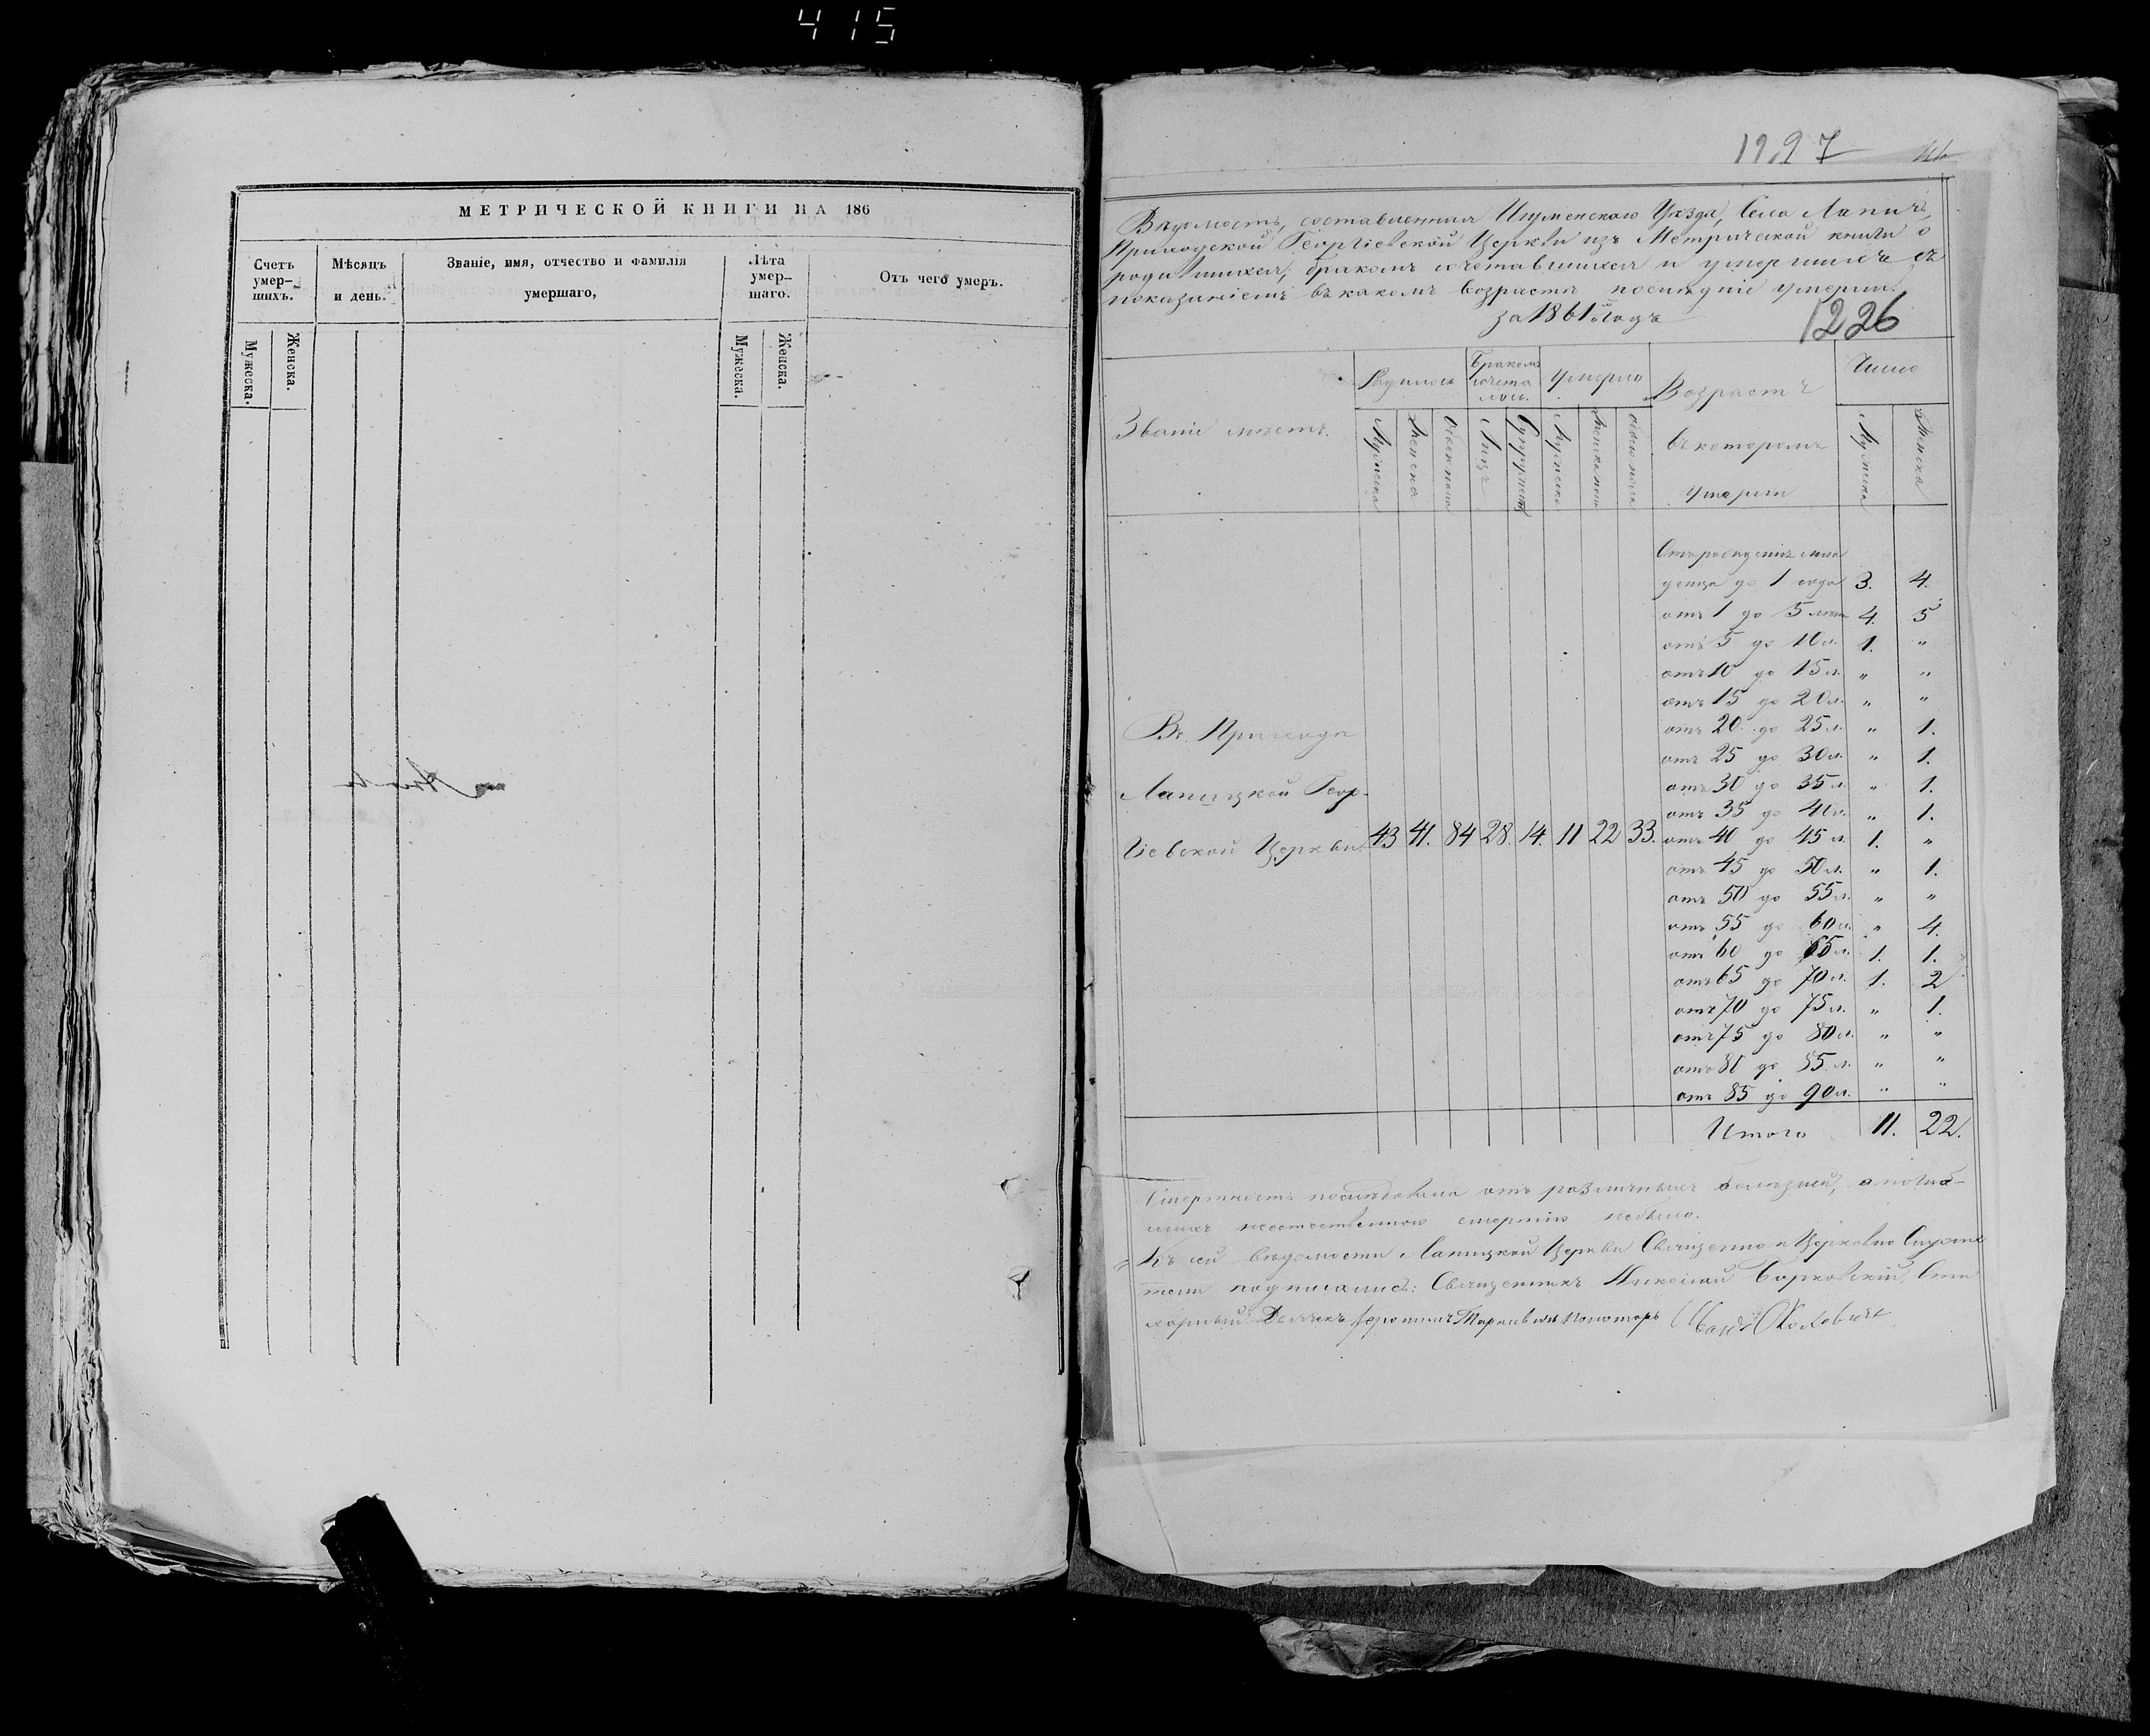 415
МЕТРИЧЕСКОЙ КНИГИ НА 186
Счетъ умер-шихъ.
Мѣсяцъ и день.
Званіе, имя, отчество и фамилія умершаго,
Лѣта умер-шаго.
Отъ чего умеръ.
Мужеска.
Женска.
Мужеска.
Женска.
1227
Вѣдомость, составленная Игуменскаго Уѣзда, Села Лапичъ,
Приходской Георгіевской Церкви изъ Метрической книги о
родившихся, бракомъ сочетавшихся и умершихъ съ
показаніемъ въ какомъ возрастѣ послѣдніе умерли.
за 1861й годъ
1226
Званіе мѣстъ.
Родилось
Бракомъ сочета лось.
Умерло
Возрастъ
въ которомъ
умерли
Число
Мужеска
Женска
Обоего пола
Лицъ
Супружествъ
Мужеска
Женска пола
обоего пола
Мужеска
Женска
Отъ рожденія мла
денца до 1 года 3. 4.
отъ 1 до 5 лѣтъ 4. 5
отъ 5 до 10 л. 1. "
отъ 10 до 15 л. " "
отъ 15 до 20 л. " "
отъ 20 до 25 л. " 1.
отъ 25 до 30 л. " 1.
отъ 30 до 35 л. " 1.
отъ 35 до 40 л. " 1.
отъ 40 до 45 л. 1. "
отъ 45 до 50 л. " 1.
отъ 50 до 55 л. " "
отъ 55 до 60 л. " 4.
отъ 60 до 65 л. 1. 1.
отъ 65 до 70 л. 1. 2
отъ 70 до 75 л. " 1.
отъ 75 до 80 л. " "
отъ 80 до 85 л. " "
отъ 85 до 90 л. " "
Въ Приходѣ
Лапицкой Геор-
гіевской Церкви. 43 41. 84 28. 14. 11 22 33.
Итого 11. 22.
Смертность послѣдовала отъ различныхъ болѣзней, а погиб-
шихъ неестественною смертію не было.
Къ сей вѣдомости Лапицкой Церкви Священно и Церковно Служи
тели подписались: Священникъ Николай Борковскій.
Дьячекъ Пономарь